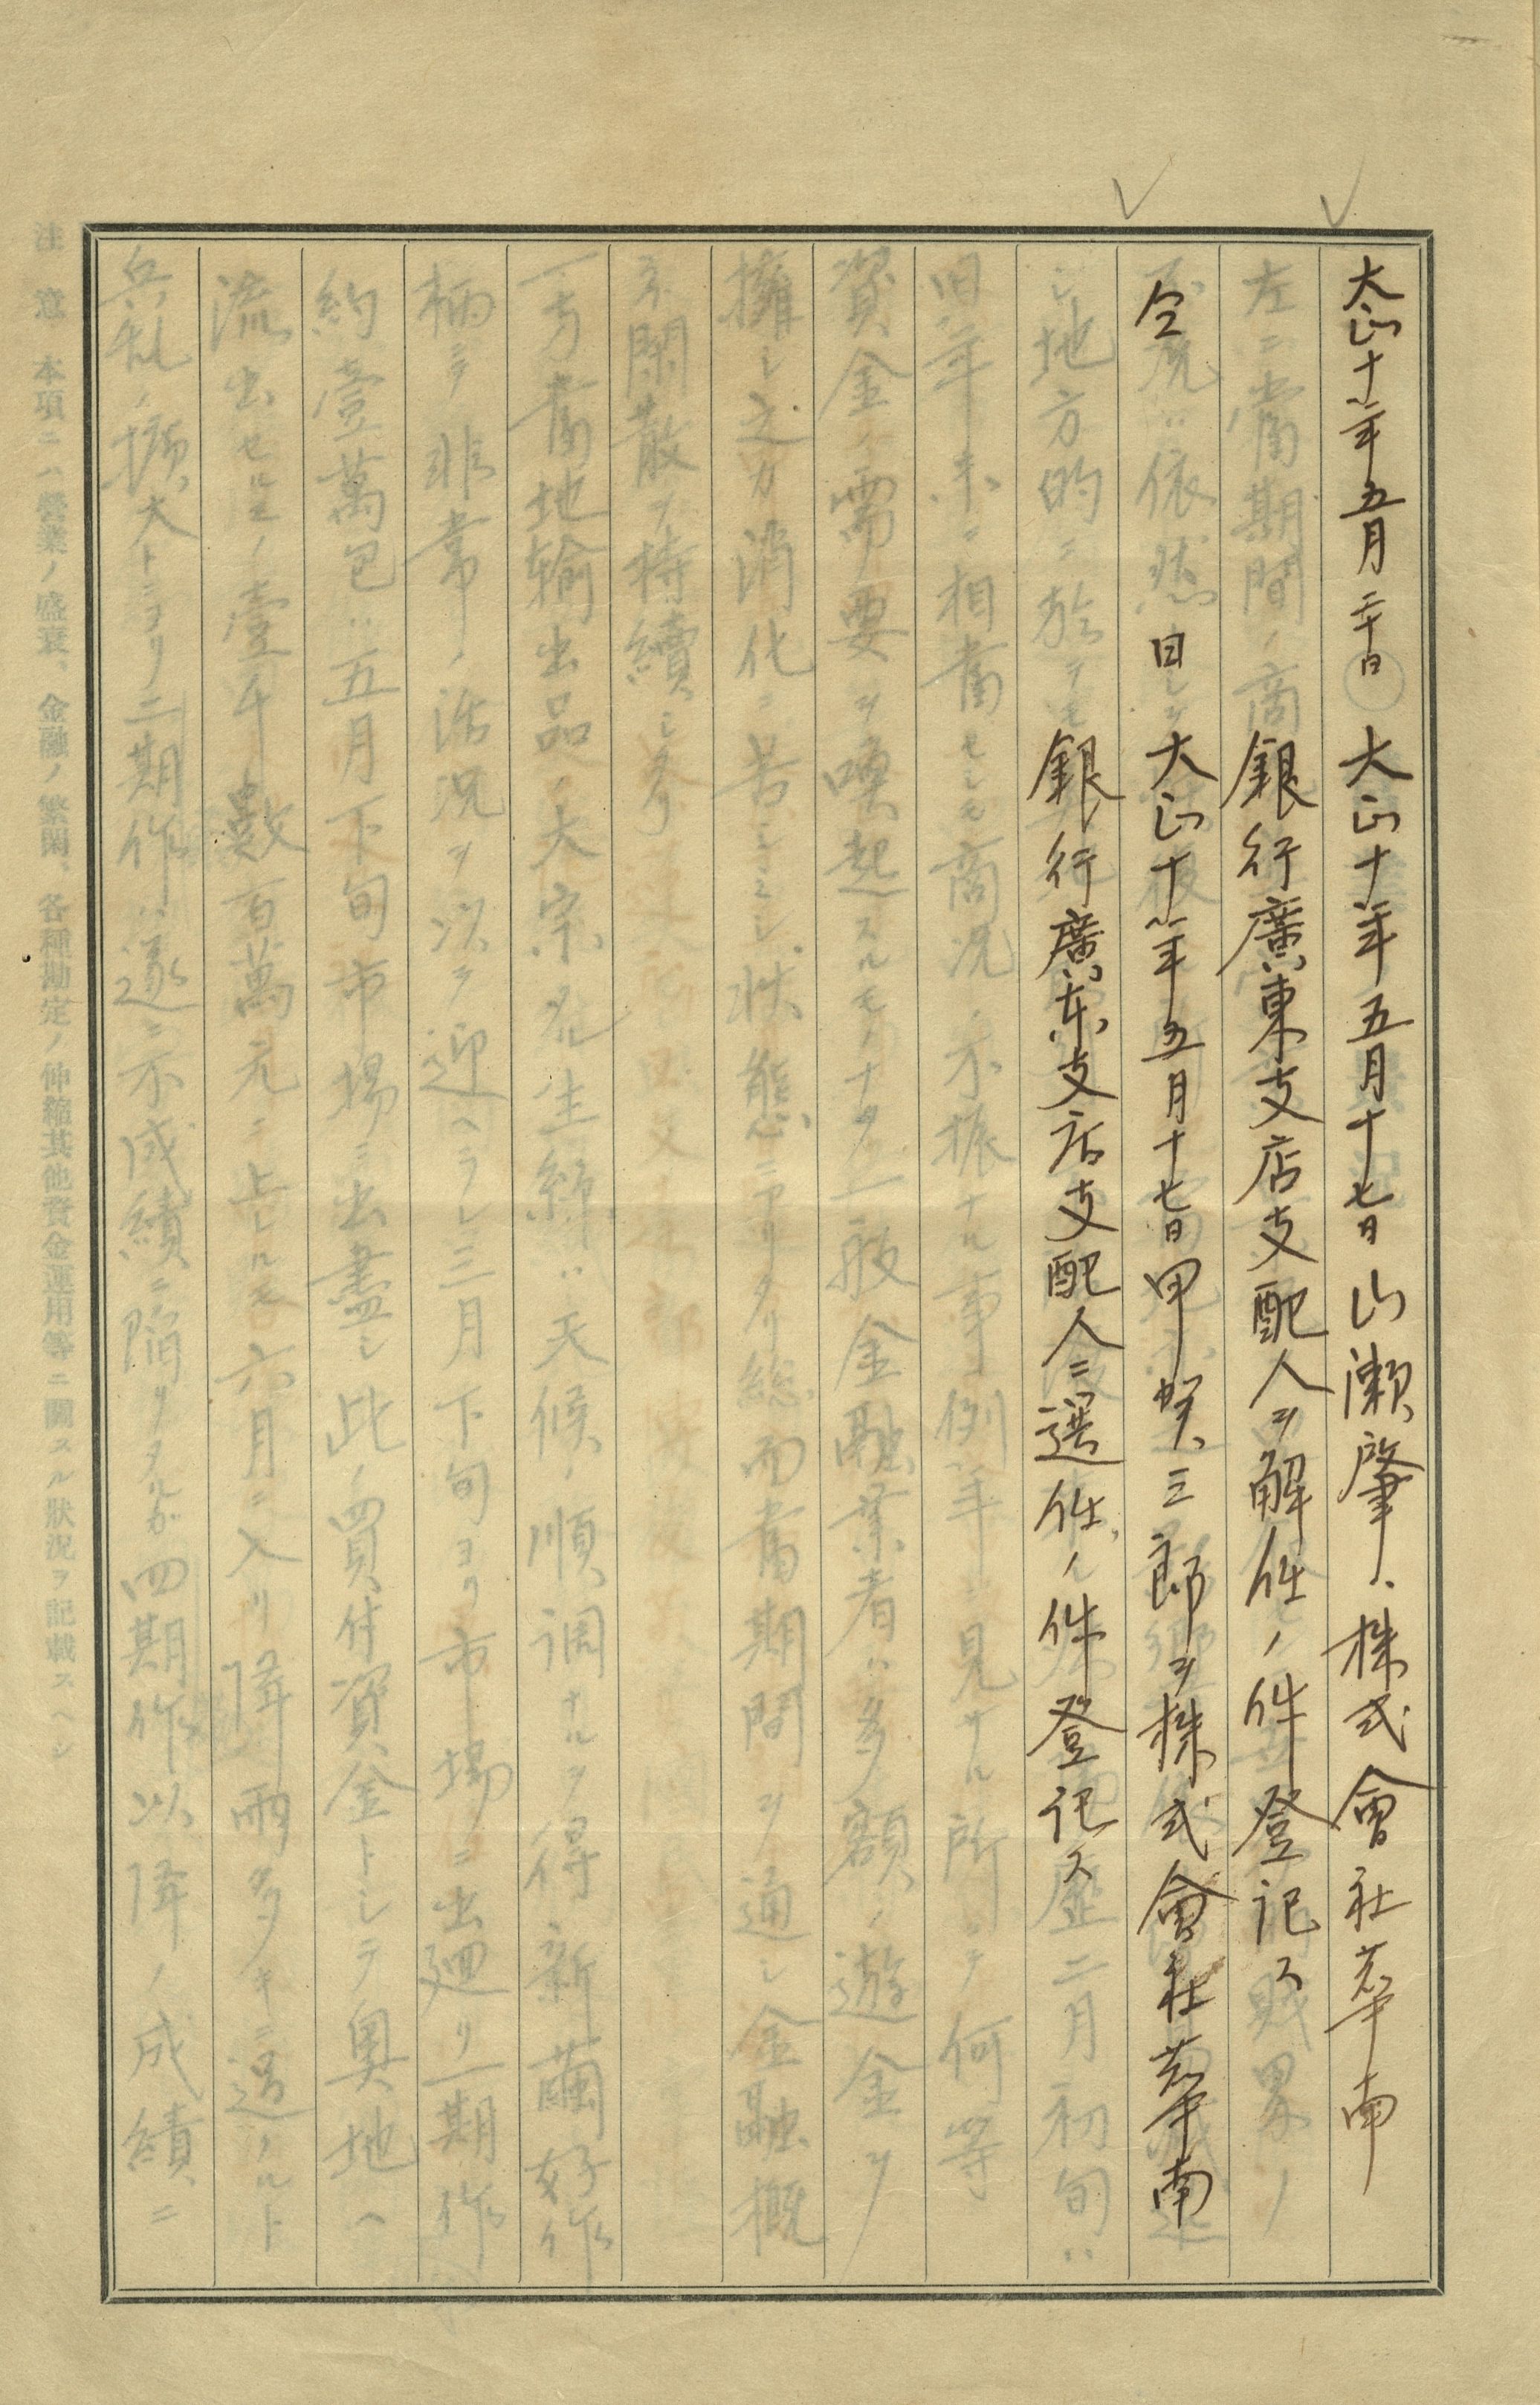 大正十年五月二十日　大正十年五月十七日山瀬肇ハ株式會社華南
銀行廣東支店支配人ヲ解任ノ件登記ス
仝　日　大正十年五月十七日甲賀三郎ヲ株式會社華南
銀行廣東支店支配人ニ選任ノ件登記ス
左ニ當期間ノ商
地方的ニ於テモ 二月初旬ハ
旧年末ニ相當セシモ商況ノ不振ナル事例年ニ見サル所ニテ何等
資金ノ需要ヲ喚起スルモノナク一般金融業者ハ多額ノ遊金ヲ
擁シ之カ消化ニ苦シミシ状態ニアリタリ総而當期間ヲ通シ金融概
ネ閑散ヲ持續シ参リ
一方當地輸出品ノ大宗タル生絲ハ天候ノ順調ナルヲ得新繭好作
柄ニテ非常ノ活況ヲ以テ迎ヘラレ三月下旬ヨリ市場ニ出廻リ一期作
約壹萬包ハ五月下旬市場ニ出盡シ此ノ買付資金トシテ奥地ヘ
流出セル 壹千數百萬元ニ上レルモ六月ニ入リ降雨多キニ過ノルト
兵乱ノ擴大トニヨリ二期作ハ遂ニ不成績ニ陥リタルガ四期作以降ノ成績ニ
注意　本項ニハ營業ノ盛衰、金融ノ繁閑、各種勘定ノ伸縮其他資金運用等ニ關スル狀況ヲ記載スヘシ